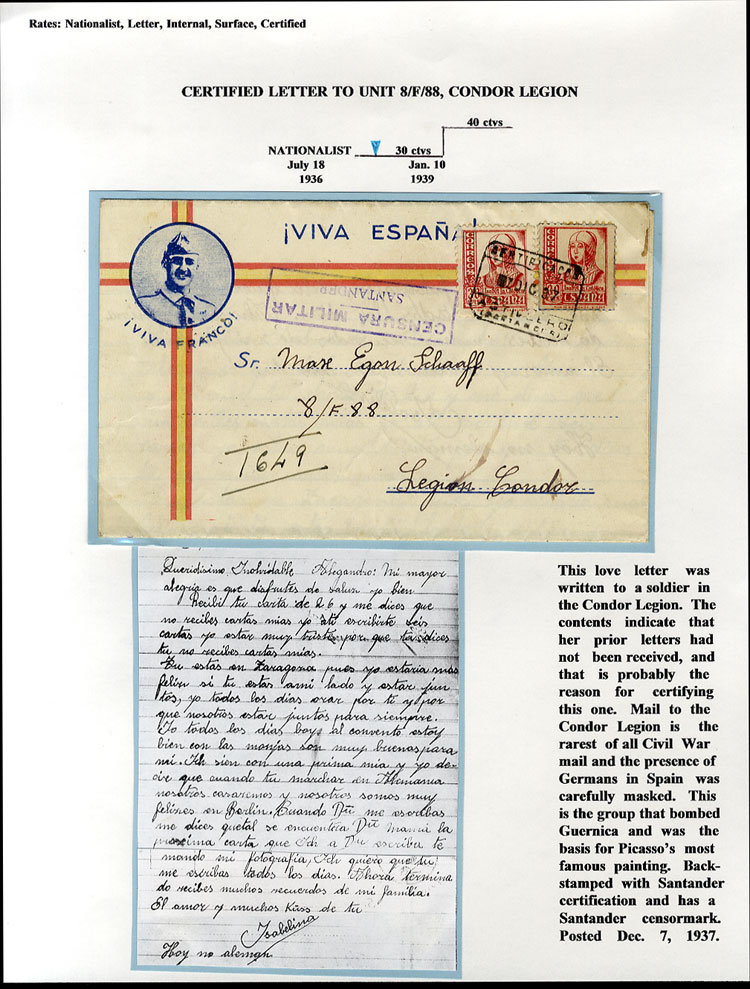 Rates: Nationalist, Letter, Internal, Surface, Certified
CERTIFIED LETTER TO UNIT 8/F/88, CONDOR LEGION
40 ctvs
NATIONALIST 30 ctvs
July 18 Jan. 10
1936 1939
¡VIVA ESPAÑA!
¡VIVA FRANCO!
CENSURA MILITAR
SANTANDER
CORREOS CORREOS
ESPAÑA
CERTIFICADO
Sr. Max Egon Schaaff
8/F 88
1649
Legion Condor
Queridisimo Inolvidable Alegandro: Mi mayor
alegria es que disfrutes de salud yo bien
Recibi tu carta de 26 y me dices que
no recibes cartas mias yo a ti escribirte seis
cartas yo estar muy triste por que tu dices
tu no recibes cartas mias.
Tu estas en Zaragoza pues yo estaria mas
feliz si tu estas a mi lado y estar jun
tos, yo todos los dias orar por ti y por
que nosotros estar juntos para siempre.
Yo todos los dias boy al convento estoy
bien con las monjas son muy buenas para
mi. Ich sien con una prima mia y yo de-
cir que cuando tu marchar en Alemania
nosotros casaremos y nosotros somos muy
felizes en Berlin. Cuando Du me escribas
me dices que tal se encuentera Du mamá la
proxima carta que Ich a Du escriba te
mando mi fotografia, Ich quiero que tu
me escribas todos los dias. Ahora termina
do recibes muchos recuerdos de mi familia.
El amor y muchos Kuss de tu
Isabelina
Hoy no aleman
This love letter was
written to a soldier in
the Condor Legion. The
contents indicate that
her prior letters had
not been received, and
that is probably the
reason for certifying
this one. Mail to the
Condor Legion is the
rarest of all Civil War
mail and the presence of
Germans in Spain was
carefully masked. This
is the group that bombed
Guernica and was the
basis for Picasso's most
famous painting. Back-
stamped with Santander
certification and has a
Santander censormark.
Posted Dec. 7, 1937.